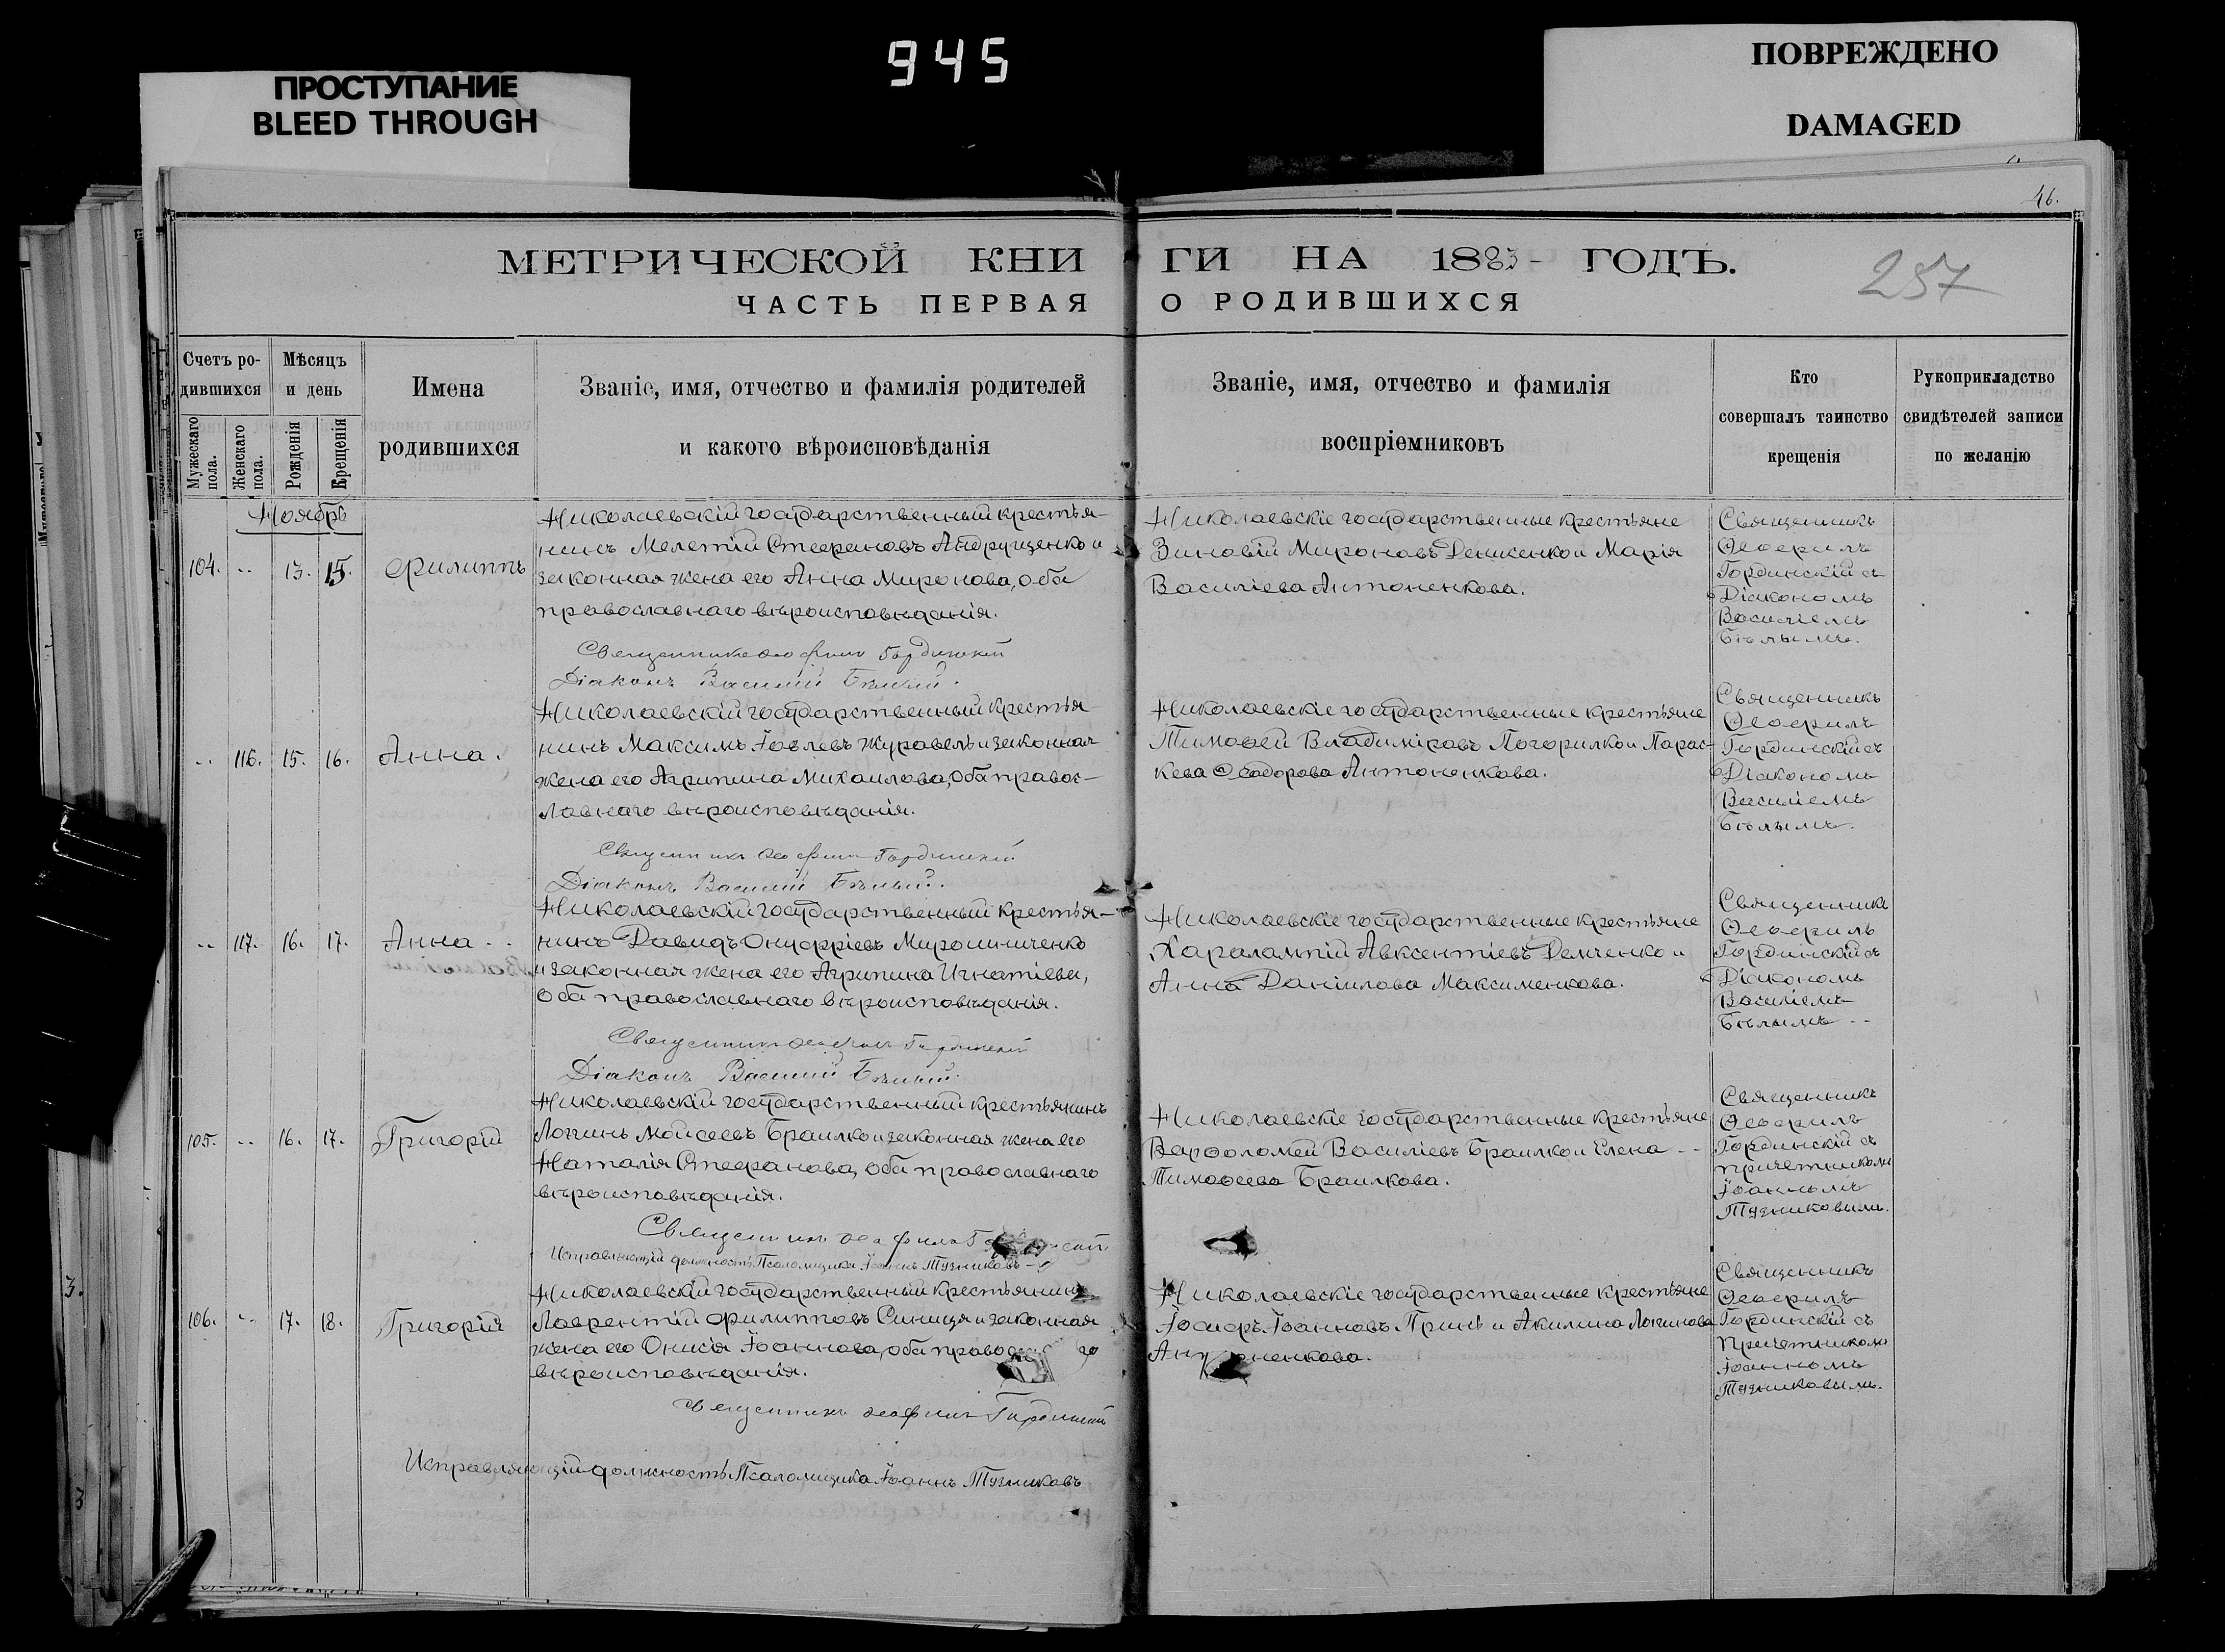 945
ПРОСТУПАНИЕ
BLEED THROUGH
ПОВРЕЖДЕНО
DAMAGED
46.
МЕТРИЧЕСКОЙ КНИ
ГИ НА 1883 ГОДЪ.
257
ЧАСТЬ ПЕРВАЯ
О РОДИВШИХСЯ
Счетъ ро-
дившихся
Мужескаго
пола.
Женскаго
пола.
Мѣсяцъ
и день
Рожденія
Крещенія
Имена
родившихся
Званіе, имя, отчество и фамилія родителей
и какого вѣроисповѣданія
Званіе, имя, отчество и фамилія
воспріемниковъ
Кто
совершалъ таинство
крещенія
Рукоприкладство
свидѣтелей записи
по желанію
Ноябрь
104. -- 13. 15. Филиппъ
Николаевскій государственный крестья-
нинъ Мелетій Стефановъ Андрущенко и
законная жена его Анна Миронова, оба
православнаго вѣроисповѣданія.
Священникъ Ѳеофилъ Гординскій
Діаконъ Василій Бѣлый.
Николаевскіе государственные крестьяне
Зиновій Мироновъ Денисенко и Марія
Василіева Антоненкова.
Священникъ
Ѳеофилъ
Гординскій съ
Діакономъ
Василіемъ
Бѣлымъ.
-- 116. 15. 16. Анна.
Николаевскій государственный крестья-
нинъ Максимъ Іовлевъ Журавель и законная
жена его Агрипина Михаилова, оба правос-
лавнаго вѣроисповѣданія.
Священникъ Ѳеофилъ Гординскій
Діаконъ Василій Бѣлый.
Николаевскіе государственные крестьяне
Тимоѳей Владиміровъ Погорилко и Парас-
кева Ѳеодорова Антоненкова.
Священникъ
Ѳеофилъ
Гординскій съ
Діакономъ
Василіемъ
Бѣлымъ.
-- 117. 16. 17. Анна --
Николаевскій государственный крестья-
нинъ Давидъ Онуфріевъ Мирошниченко
и законная жена его Агрипина Игнатіева,
оба православнаго вѣроисповѣданія.
Священникъ Ѳеофилъ Гординскій
Діаконъ Василій Бѣлый.
Николаевскіе государственные крестьяне
Харалампій Авксентіевъ Демченко и
Анна Даніилова Максименкова.
Священникъ
Ѳеофилъ
Гординскій съ
Діакономъ
Василіемъ
Бѣлымъ --
105. -- 16. 17. Григорій
Николаевскій государственный крестьянинъ
Логинъ Мойсеевъ Браилко и законная жена его
Наталія Стефанова, оба православнаго
вѣроисповѣданія.
Священникъ Ѳеофилъ
Исправляющій должность Псаломщика Іоаннъ Тузниковъ
Николаевскіе государственные крестьяне
Варѳоломей Василіевъ Браилко и Елена --
Тимоѳеева Браилкова.
Священникъ
Ѳеофилъ
Гординскій съ
причетникомъ
Іоанномъ
Тузниковымъ.
106. -- 17. 18. Григорій
Николаевскій государственный крестьянинъ
Лаврентій Филипповъ Синица и законная
жена его Онисія Іоаннова, оба
вѣроисповѣданія.
Священникъ Ѳеофилъ Гординскій
Исправляющій должность Псаломщика Іоаннъ Тузниковъ
Николаевскіе государственные крестьяне
Іосифъ Іоанновъ Гринь и Акилина Логинова
Священникъ
Ѳеофилъ
Гординскій съ
Причетникомъ
Іоанномъ
Тузниковымъ.